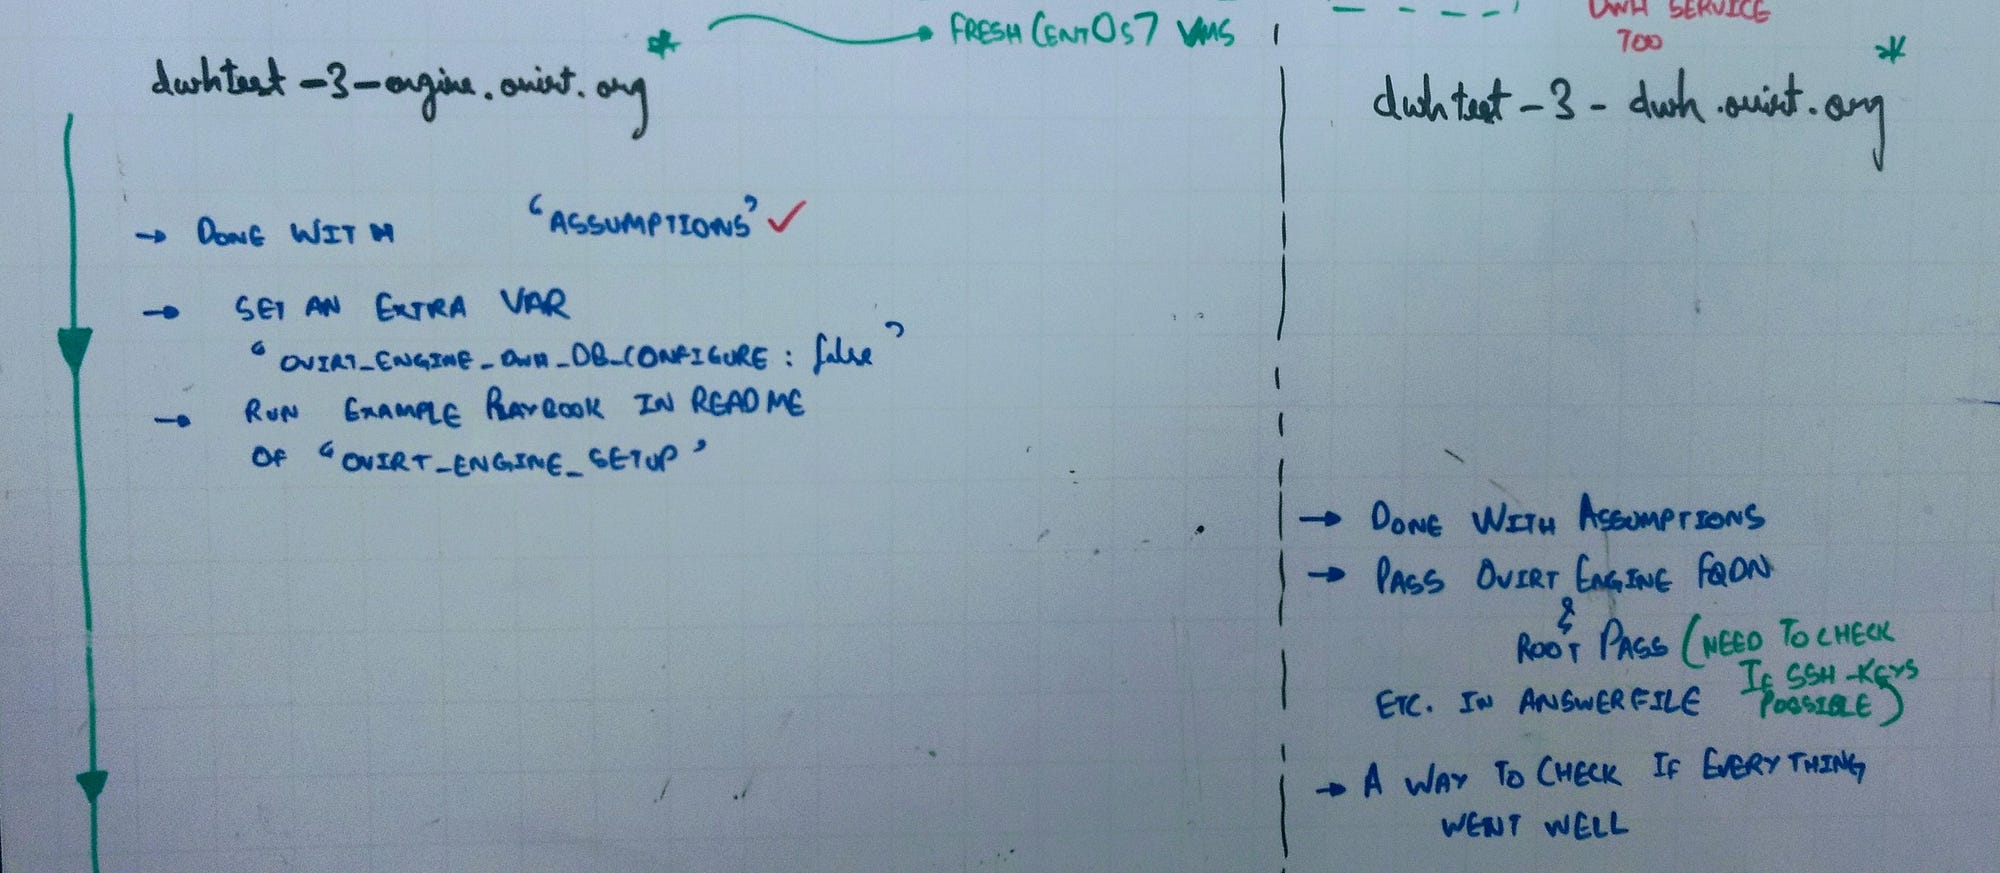 * FRESH CENTOS7 VMS
dwhtest-3-engine.ovirt.org
→ DONE WITH "ASSUMPTIONS" ✓
→ SET AN EXTRA VAR
"OVIRT_ENGINE_DWH_DB_CONFIGURE: false"
→ RUN EXAMPLE PLAYBOOK IN README
OF "OVIRT_ENGINE_SETUP"
DWH SERVICE
700
*
dwhtest-3-dwh.ovirt.org
→ DONE WITH ASSUMPTIONS
→ PASS OVIRT ENGINE FQDN
&
ROOT PASS (NEED TO CHECK
IF SSH-KEYS
ETC. IN ANSWERFILE POSSIBLE)
→ A WAY TO CHECK IF EVERYTHING
WENT WELL